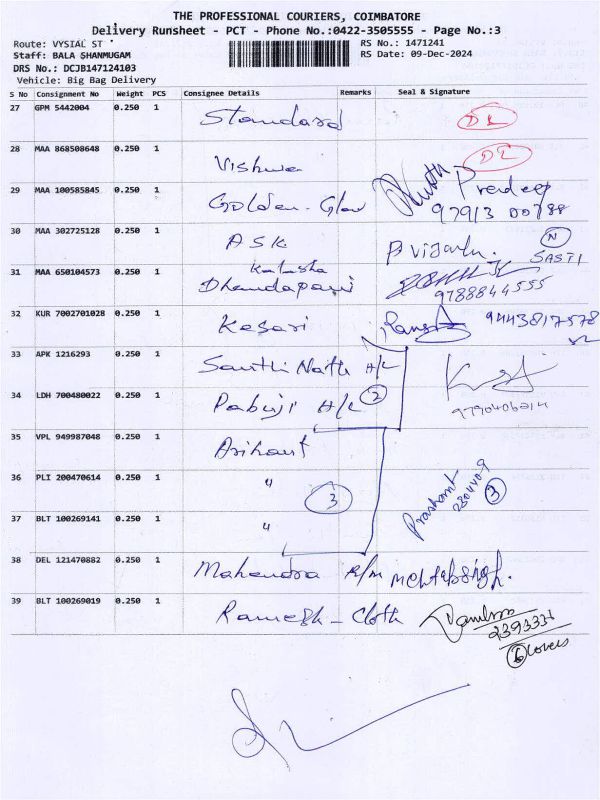 THE PROFESSIONAL COURIERS, COIMBATORE
Delivery Runsheet - PCT - Phone No.:0422-3505555 - Page No.:3
Route: VYSIAL ST
RS No.: 1471241
Staff: BALA SHANMUGAM
RS Date: 09-Dec-2024
DRS No.: DCJB147124103
Vehicle: Big Bag Delivery
S No Consignment No Weight PCS Consignee Details Remarks Seal & Signature
27 GPM 5442004 0.250 1 Standard DL
28 MAA 868508648 0.250 1 Vishwa DL
29 MAA 100585845 0.250 1 Golden-Glow Pradeep
97913 00788
30 MAA 302725128 0.250 1 ASK N
SASTI
31 MAA 650104573 0.250 1 Kalasha
Dhandapani 9788844555
32 KUR 7002701028 0.250 1 Kesari 9443817578
33 APK 1216293 0.250 1 Santhi Nath H/L
34 LDH 700480022 0.250 1 Pabuji H/L 2 9790406214
35 VPL 949987048 0.250 1 Arihant
36 PLI 200470614 0.250 1 " 3 Prashant
2304409 3
37 BLT 100269141 0.250 1 "
38 DEL 121470882 0.250 1 Mahendra R/m Mehtabsingh.
39 BLT 100269019 0.250 1 Ramesh - Cloth
2393331
6 Covers